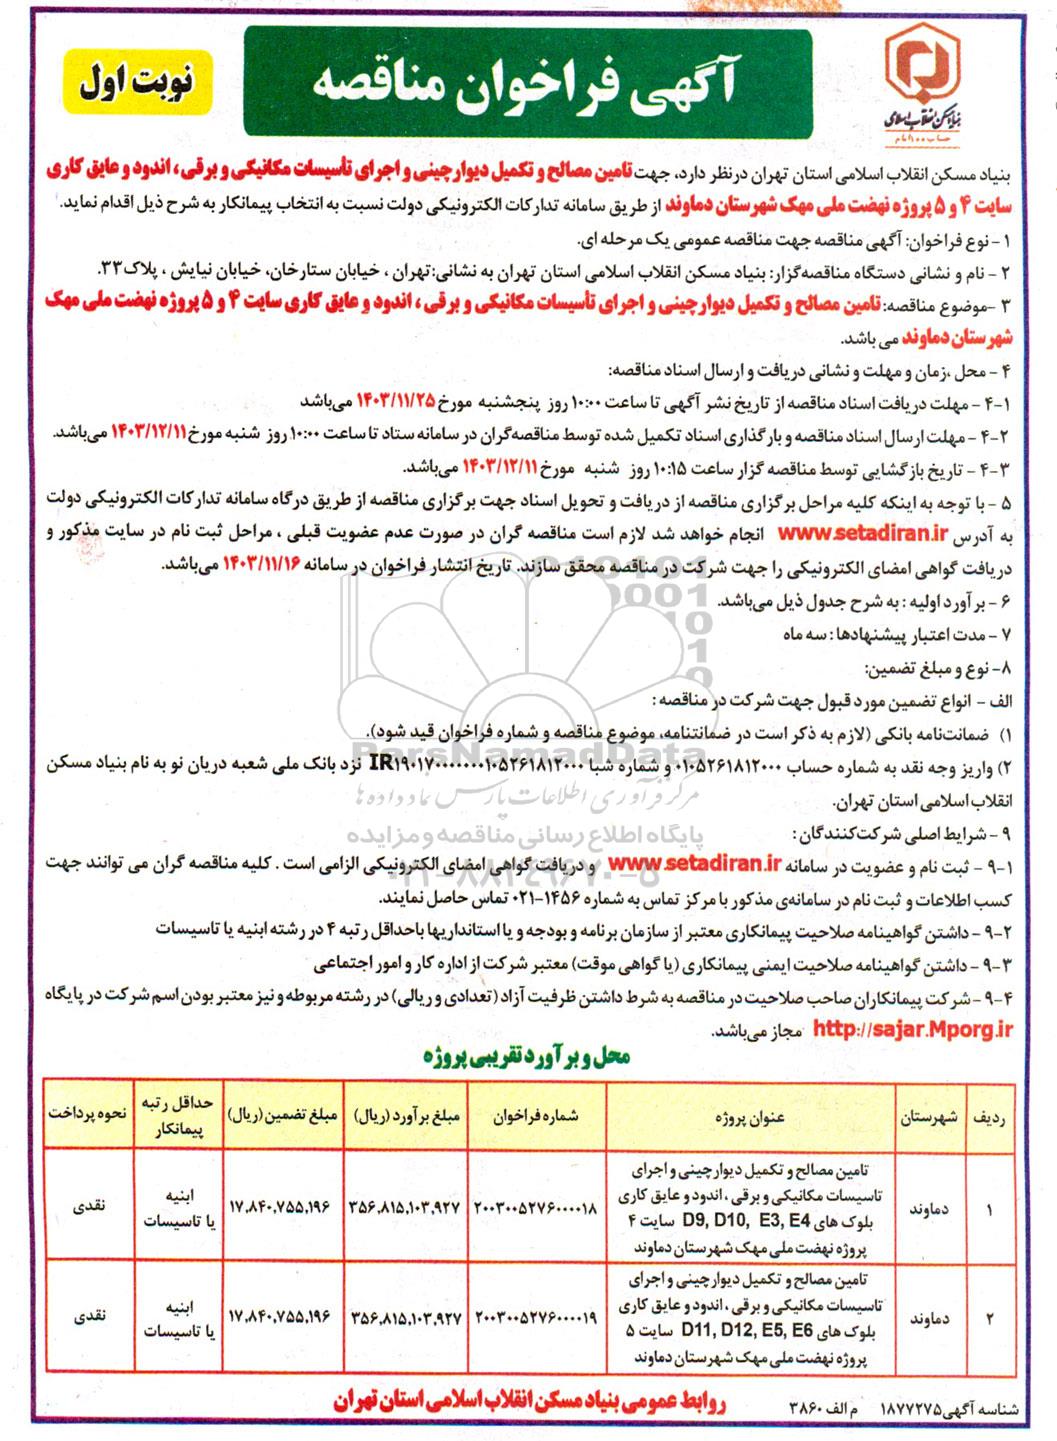 آگهی فراخوان مناقصه
نوبت اول
بنیاد مسکن انقلاب اسلامی
حساب ۱۰۰ امام
بنیاد مسکن انقلاب اسلامی استان تهران درنظر دارد، جهت تامین مصالح و تکمیل دیوارچینی و اجرای تأسیسات مکانیکی و برقی ، اندود و عایق کاری
سایت ۴ و ۵ پروژه نهضت ملی مهک شهرستان دماوند از طریق سامانه تدارکات الکترونیکی دولت نسبت به انتخاب پیمانکار به شرح ذیل اقدام نماید.
۱ - نوع فراخوان: آگهی مناقصه جهت مناقصه عمومی یک مرحله ای.
۲ - نام و نشانی دستگاه مناقصه‌گزار: بنیاد مسکن انقلاب اسلامی استان تهران به نشانی:تهران ، خیابان ستارخان، خیابان نیایش ، پلاک۳۳.
۳ -موضوع مناقصه: تامین مصالح و تکمیل دیوارچینی و اجرای تأسیسات مکانیکی و برقی ، اندود و عایق کاری سایت ۴ و ۵ پروژه نهضت ملی مهک
شهرستان دماوند می باشد.
۴ - محل ،زمان و مهلت و نشانی دریافت و ارسال اسناد مناقصه:
۴-۱ - مهلت دریافت اسناد مناقصه از تاریخ نشر آگهی تا ساعت ۱۰:۰۰ روز پنجشنبه مورخ ۱۴۰۳/۱۱/۲۵ می‌باشد
۴-۲ - مهلت ارسال اسناد مناقصه و بارگذاری اسناد تکمیل شده توسط مناقصه‌گران در سامانه ستاد تا ساعت ۱۰:۰۰ روز شنبه مورخ ۱۴۰۳/۱۲/۱۱ می‌باشد.
۴-۳ - تاریخ بازگشایی توسط مناقصه گزار ساعت ۱۰:۱۵ روز شنبه مورخ ۱۴۰۳/۱۲/۱۱ می‌باشد.
۵ - با توجه به اینکه کلیه مراحل برگزاری مناقصه از دریافت و تحویل اسناد جهت برگزاری مناقصه از طریق درگاه سامانه تدارکات الکترونیکی دولت
به آدرس www.setadiran.ir انجام خواهد شد لازم است مناقصه گران در صورت عدم عضویت قبلی ، مراحل ثبت نام در سایت مذکور و
دریافت گواهی امضای الکترونیکی را جهت شرکت در مناقصه محقق سازند. تاریخ انتشار فراخوان در سامانه ۱۴۰۳/۱۱/۱۶ می‌باشد.
۶ - برآورد اولیه : به شرح جدول ذیل می‌باشد.
۷ - مدت اعتبار پیشنهادها : سه ماه
۸- نوع و مبلغ تضمین:
الف - انواع تضمین مورد قبول جهت شرکت در مناقصه :
۱) ضمانت‌نامه بانکی (لازم به ذکر است در ضمانتنامه، موضوع مناقصه و شماره فراخوان قید شود).
ParsNamadData
۲) واریز وجه نقد به شماره حساب ۰۱۰۵۲۶۱۸۱۲۰۰۰ و شماره شبا IR۱۹۰۱۷۰۰۰۰۰۰۰۱۰۵۲۶۱۸۱۲۰۰۰ نزد بانک ملی شعبه دریان نو به نام بنیاد مسکن
انقلاب اسلامی استان تهران.
مرکز فرآوری اطلاعات پارس نماد داده ها
۹ - شرایط اصلی شرکت‌کنندگان :
پایگاه اطلاع رسانی مناقصه و مزایده
۹-۱ - ثبت نام و عضویت در سامانه www.setadiran.ir و دریافت گواهی امضای الکترونیکی الزامی است . کلیه مناقصه گران می توانند جهت
۰۲۱-۸۸۳۴۹۶۷۰-۵
کسب اطلاعات و ثبت نام در سامانه‌ی مذکور با مرکز تماس به شماره ۱۴۵۶-۰۲۱ تماس حاصل نمایند.
۹-۲ - داشتن گواهینامه صلاحیت پیمانکاری معتبر از سازمان برنامه و بودجه و یا استانداریها باحداقل رتبه ۴ در رشته ابنیه یا تاسیسات
۹-۳ - داشتن گواهینامه صلاحیت ایمنی پیمانکاری (یا گواهی موقت) معتبر شرکت از اداره کار و امور اجتماعی
۹-۴ - شرکت پیمانکاران صاحب صلاحیت در مناقصه به شرط داشتن ظرفیت آزاد (تعدادی و ریالی) در رشته مربوطه و نیز معتبر بودن اسم شرکت در پایگاه
http://sajar.Mporg.ir مجاز می‌باشد.
محل و برآورد تقریبی پروژه
ردیف شهرستان عنوان پروژه شماره فراخوان مبلغ برآورد (ریال) مبلغ تضمین (ریال) حداقل رتبه پیمانکار نحوه پرداخت
۱ دماوند تامین مصالح و تکمیل دیوارچینی و اجرای
تاسیسات مکانیکی و برقی ، اندود و عایق کاری
بلوک های D9, D10, E3, E4 سایت ۴
پروژه نهضت ملی مهک شهرستان دماوند
۲۰۰۳۰۰۵۲۷۶۰۰۰۰۱۸ ۳۵۶,۸۱۵,۱۰۳,۹۲۷ ۱۷,۸۴۰,۷۵۵,۱۹۶ ابنیه یا تاسیسات نقدی
۲ دماوند تامین مصالح و تکمیل دیوارچینی و اجرای
تاسیسات مکانیکی و برقی ، اندود و عایق کاری
بلوک های D11, D12, E5, E6 سایت ۵
پروژه نهضت ملی مهک شهرستان دماوند
۲۰۰۳۰۰۵۲۷۶۰۰۰۰۱۹ ۳۵۶,۸۱۵,۱۰۳,۹۲۷ ۱۷,۸۴۰,۷۵۵,۱۹۶ ابنیه یا تاسیسات نقدی
شناسه آگهی ۱۸۷۷۲۷۵ م الف ۳۸۶۰
روابط عمومی بنیاد مسکن انقلاب اسلامی استان تهران